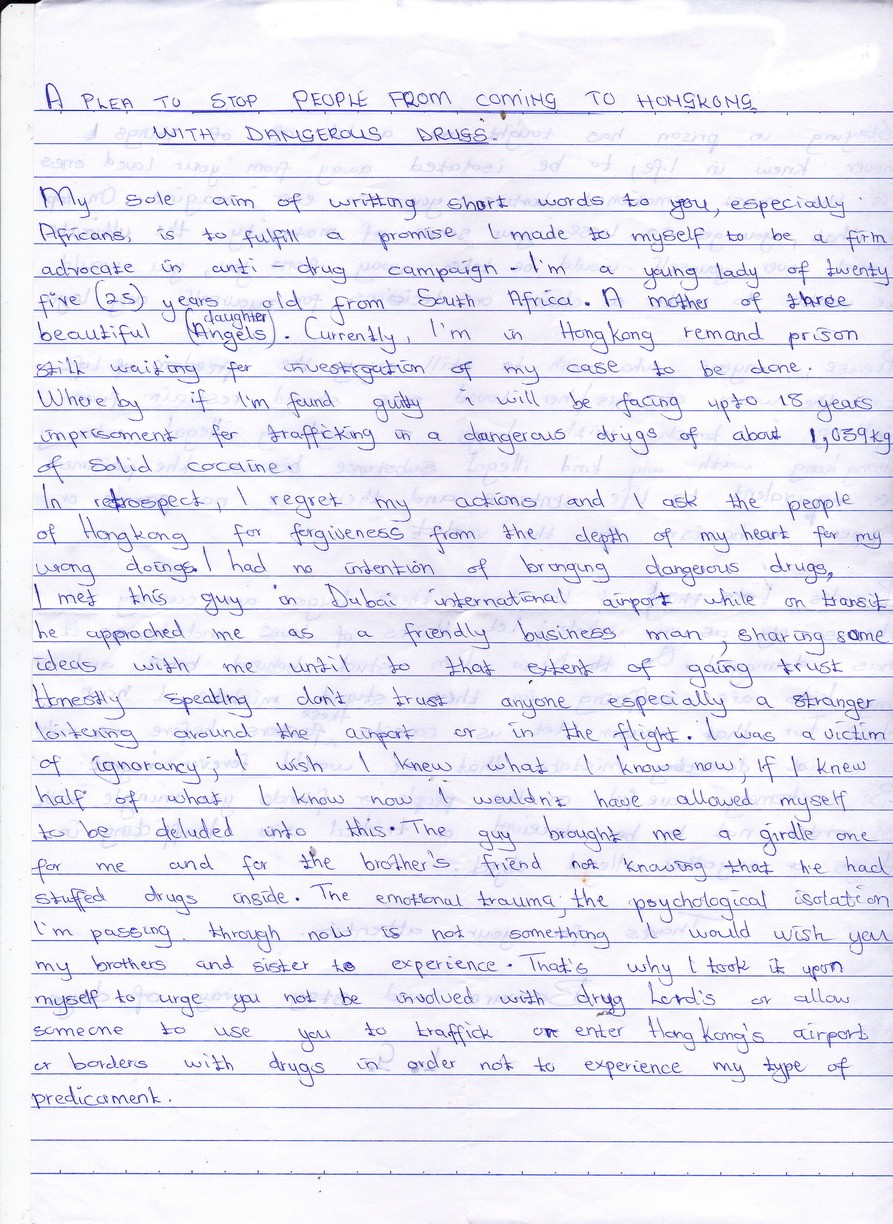 A PLEA TO STOP PEOPLE FROM COMING TO HONGKONG
WITH DANGEROUS DRUGS.
My sole aim of writting short words to you, especially
Africans, is to fulfill a promise I made to myself to be a firm
advocate in anti - drug campaign - I'm a young lady of twenty
five (25) years old from South Africa. A mother of three
beautiful (daughter Angels). Currently, I'm in Hongkong remand prison
still waiting for investigation of my case to be done.
Where by if I'm found guity i will be facing upto 18 years
imprisoment for trafficking in a dangerous drugs of about 1,039kg
of solid cocaine.
In retrospect, I regret my actions and I ask the people
of Hongkong for forgiveness from the depth of my heart for my
wrong doings. I had no intention of bringing dangerous drugs,
I met this guy in Dubai international airport while on transit
he approched me as a friendly business man, sharing some
ideas with me until to that extent of gaing trust
Honestly speaking don't trust anyone especially a stranger
loitering around the airport or in the flight. I was a victim
of ignorancy, I wish I knew what I know now; If I knew
half of what I know now I wouldn't have allowed myself
to be deluded into this. The guy brought me a girdle one
for me and for the brother's friend not knowing that he had
stuffed drugs inside. The emotional trauma; the psychological isolation
I'm passing through now is not something I would wish you
my brothers and sister to experience. That's why I took it upon
myself to urge you not be involved with drug Lord's or allow
someone to use you to traffick or enter Hong kong's airport
or borders with drugs in order not to experience my type of
predicament.